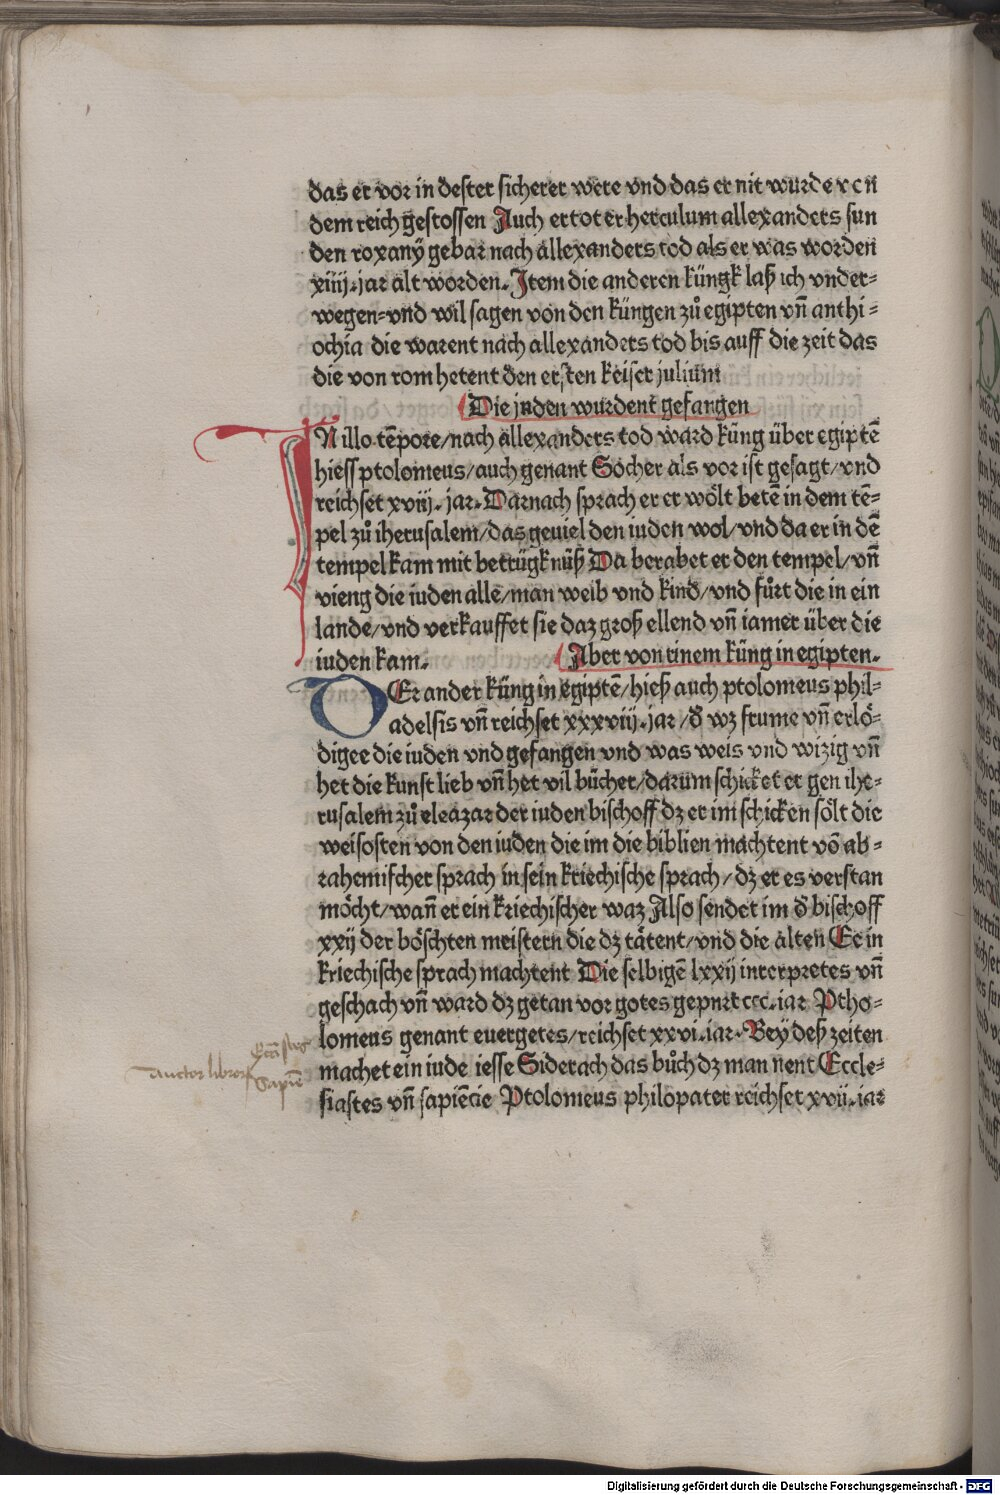 das er vor in dester sicherer were vnd das er nit wurde von
dem reich gestossen Auch er tot er herculum allexanders sun
den roxany gebar nach allexanders tod als er was worden
xiiij. jar alt worden. Item die anderen küngk laß ich vnder=
wegen=vnd wil sagen von den küngen zů egipten vñ anthi=
ochia die warent nach allexanders tod bis auff die zeit das
die von rom hetent den ersten keiser julium
Die juden wurdent gefangen
IN illo tēpore/nach allexanders tod ward küng über egiptē
hiess ptolomeus/auch genant Socher als vor ist gesagt/vnd
reichset xviij. jar. Darnach sprach er er wölt betē in dem tē=
pel zů iherusalem/das geuiel den iuden wol/vnd da er in dē
tempel kam mit betrügknüß Da berabet er den tempel/vñ
vieng die iuden alle/man weib vnd kind/vnd fůrt die in ein
lande/vnd verkauffet sie daz groß ellend vñ iamer über die
iuden kam.
Aber von einem küng in egipten.
DEr ander küng in egiptē/hieß auch ptolomeus phil=
adelsis vñ reichset xxxviij. jar/d̄ wz frume vñ erlö=
digee die iuden vnd gefangen vnd was weis vnd wizig vñ
het die kunst lieb vñ het vil bücher/darum schicket er gen ihe=
rusalem zů eleazar der iuden bischoff dz er im schicken sölt die
weisosten von den iuden die im die biblien machtent vō ab=
rahemischer sprach in sein kriechische sprach/dz er es verstan
möcht/wañ er ein kriechischer waz Also sendet im d̄ bischoff
xxij der böschten meistern die dz tätent/vnd die alten Ee in
kriechische sprach machtent Die selbigē lxxij interpretes vñ
geschach vñ ward dz getan vor gotes gepurt ccc. iar Ptho=
lomeus genant euergetes/reichset xxvi. iar. Bey deß zeiten
machet ein iude iesse Siderach das bůch dz man nent Eccle=
siastes vñ sapiēcie Ptolomeus philopater reichset xvii. iar
auctor libror
Sapiē
Digitalisierung gefördert durch die Deutsche Forschungsgemeinschaft - DFG